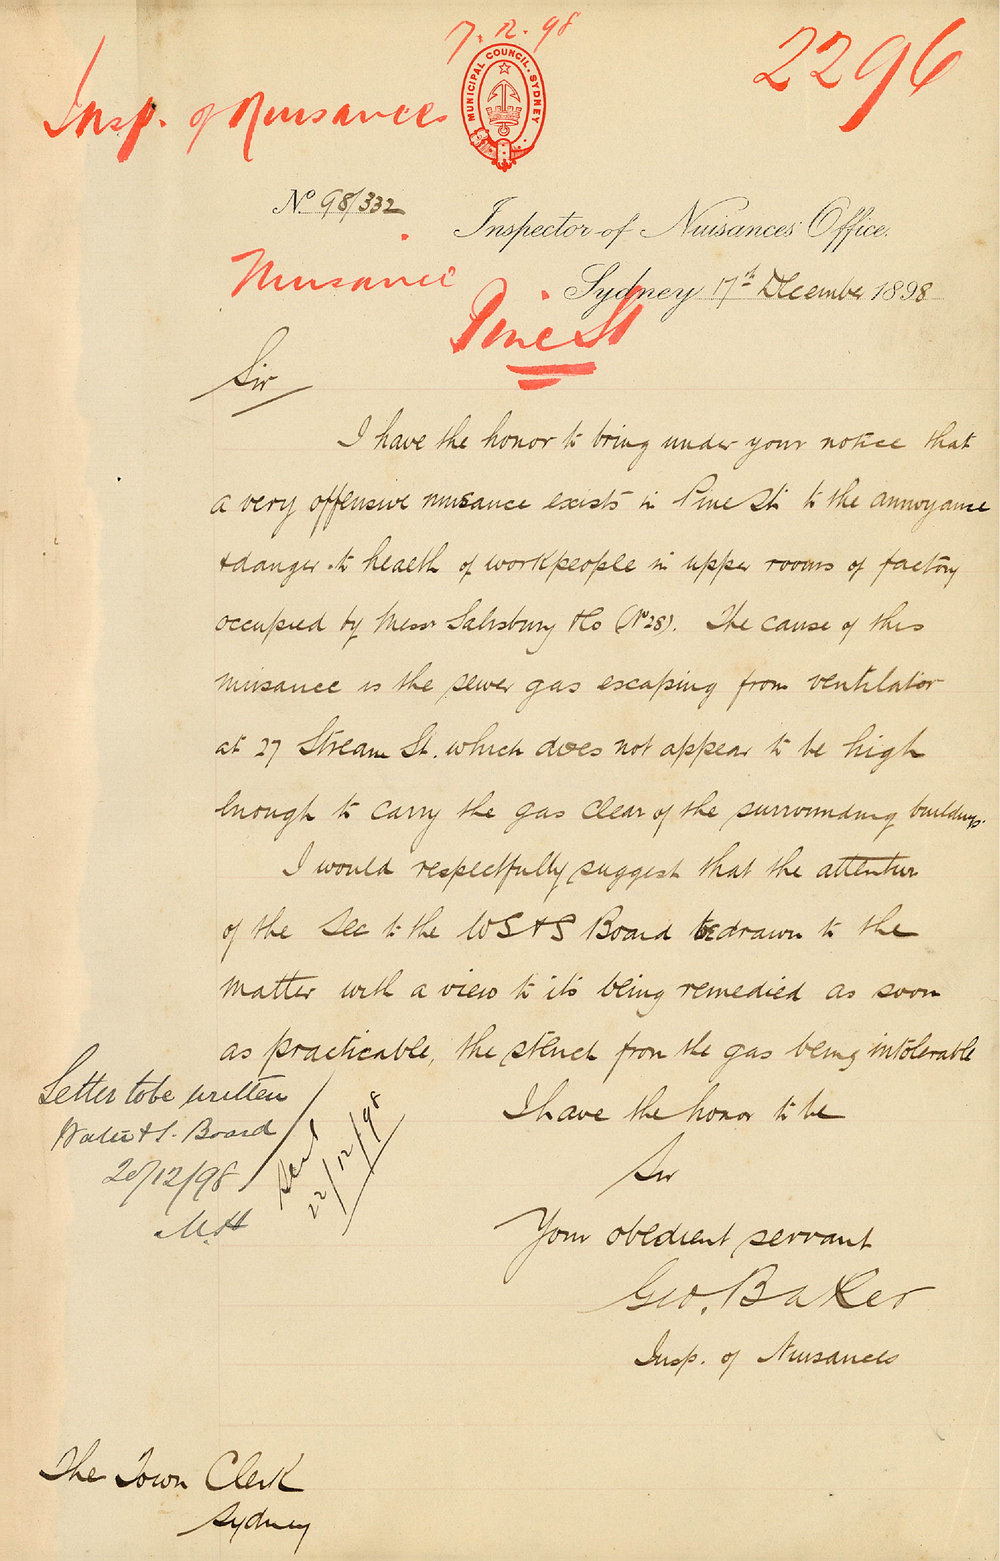 7.12.98
2296
Insp. of Nuisances
MUNICIPAL COUNCIL. SYDNEY
No 98/332
Inspector of Nuisances Office.
Nuisance
Sydney 17th December 1898
Pine St
Sir
I have the honor to bring under your notice that
a very offensive nuisance exists in Pine St. to the annoyance
& danger to health of workpeople in upper rooms of factory
occupied by Messr Salisbury & Co (No 28). The cause of this
nuisance is the sewer gas escaping from ventilator
at 27 Stream St. which does not appear to be high
enough to carry the gas clear of the surrounding buildings.
I would respectfully suggest that the attention
of the Sec to the WS&S Board be drawn to the
matter with a view to its being remedied as soon
as practicable, the stench from the gas being intolerable
I have the honor to be
Sir
Your obedient servant
Geo. Baker
Insp. of Nuisances
Letter to be written
Water & S. Board
20/12/98
M.H
Sent
22/12/98
The Town Clerk
Sydney